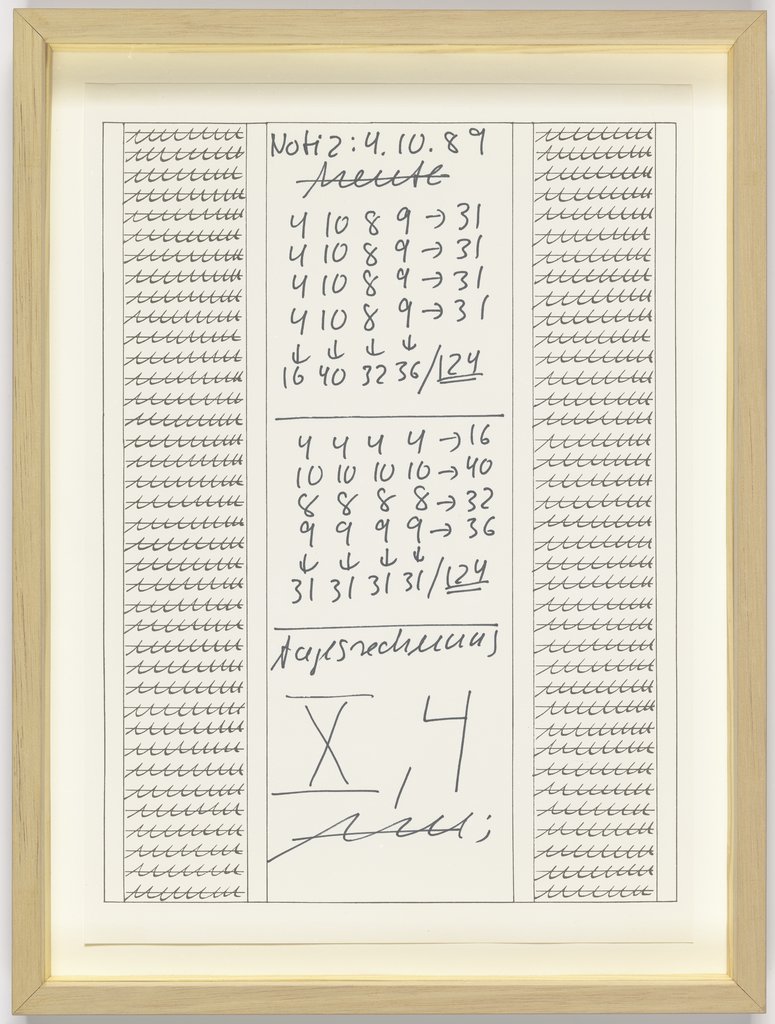 Notiz: 4.10.89
heute
4 10 8 9 → 31
4 10 8 9 → 31
4 10 8 9 → 31
4 10 8 9 → 31
↓ ↓ ↓ ↓
16 40 32 36/124
4 4 4 4 → 16
10 10 10 10 → 40
8 8 8 8 → 32
9 9 9 9 → 36
↓ ↓ ↓ ↓
31 31 31 31/124
tagesrechnung
X, 4